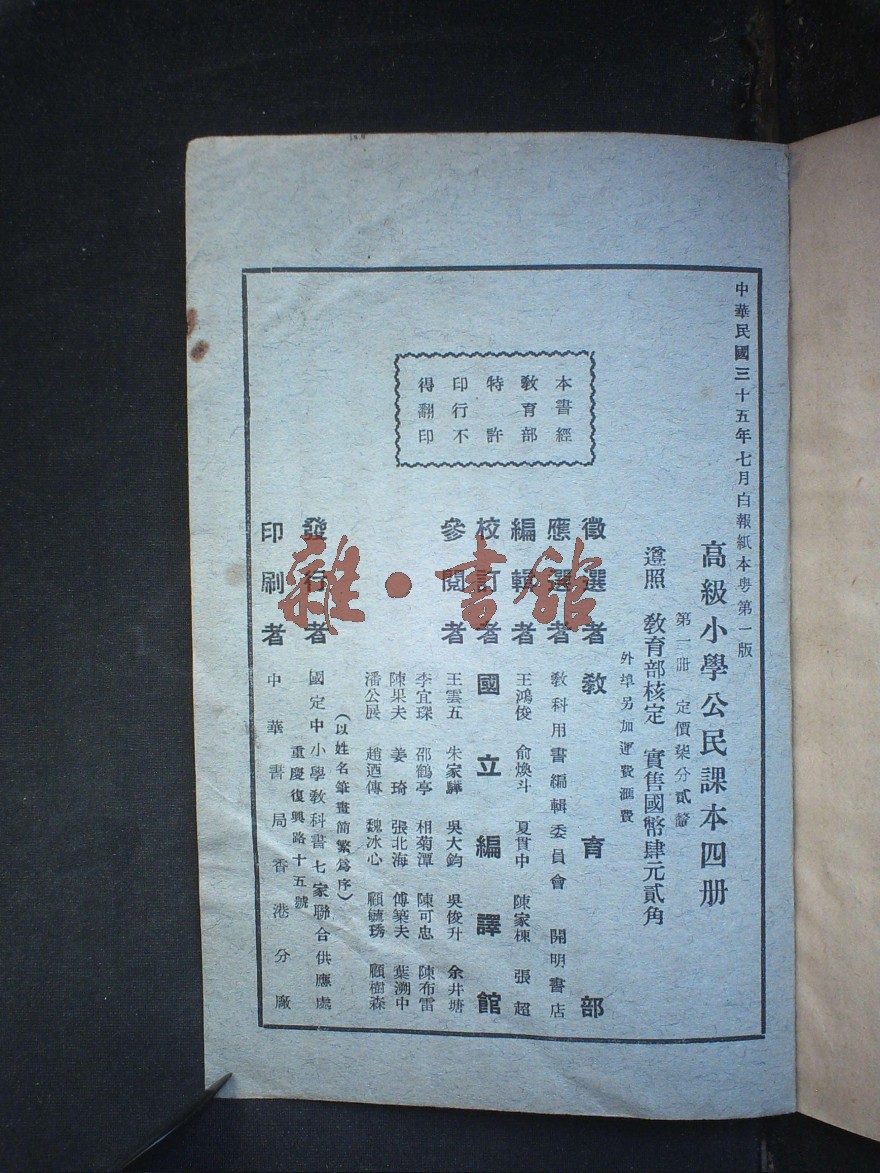 中華民國三十五年七月白報紙本粤第一版
高級小學公民課本四册
第一册 定價柒分貳釐
遵照 教育部核定 實售國幣肆元貳角
外埠另加運費滙費
本書經
教育部
特許
印行不
得翻印
徵選者 教育部
應選者 教科用書編輯委員會 開明書店
編輯者 王鴻俊 俞焕斗 夏貫中 陳家棟 張超
校訂者 國立編譯館
參閱者 王雲五 朱家驊 吳大鈞 吳俊升 余井塘
李宜琛 邵鶴亭 相菊潭 陳可忠 陳布雷
陳果夫 姜琦 張北海 傅築夫 葉溯中
潘公展 趙迺傳 魏冰心 顧毓琇 顧樹森
(以姓名筆畫简繁爲序)
發行者 國定中小學教科書七家聯合供應處
重慶復興路十五號
印刷者 中華書局香港分廠
雜·書館